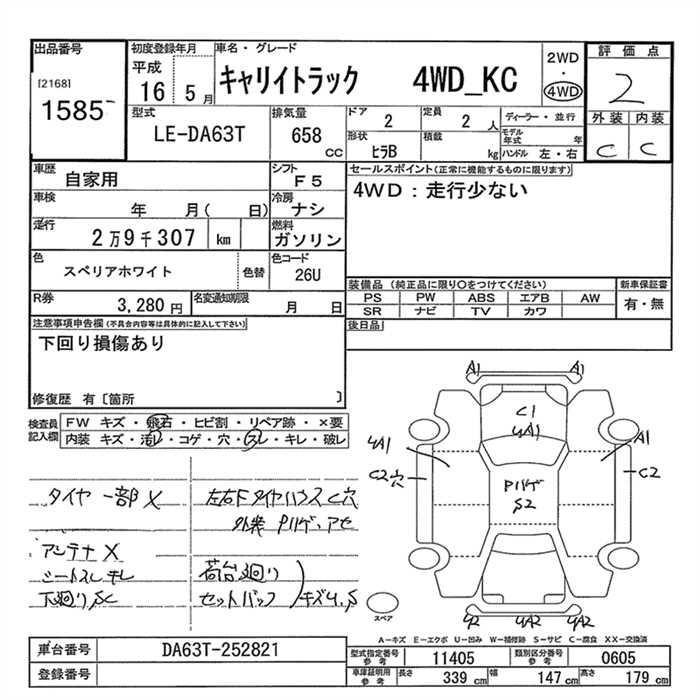 出品番号
[2168]
1585
初度登録年月
平成
16 5月
車名・グレード
キャリイトラック 4WD_KC
2WD
・
4WD
評価点
2
外装 内装
C C
型式
LE-DA63T
排気量
658
CC
ドア
2
定員
2 人
形状
ヒラB
積載
kg
ディーラー・並行
モデル年式 年
ハンドル 左・右
車歴
自家用
シフト
F5
車検
年 月( 日)
冷房
ナシ
走行
2万9千307 km
燃料
ガソリン
色
スペリアホワイト
色替
色コード
26U
R券
3,280円
名変通知期限
月 日
セールスポイント(正常に機能するものに限ります)
4WD:走行少ない
装備品 (純正品に限り○をつけてください)
PS PW ABS エアB AW
SR ナビ TV カワ
新車保証書
有・無
後日品
注意事項申告欄(不具合内容等は具体的に記入して下さい)
下回り損傷あり
修復歴 有〔箇所 〕
検査員記入欄
FW キズ・飛石・ヒビ割・リペア跡・×要
内装 キズ・汚レ・コゲ・穴・スレ・キレ・破レ
タイヤ 一部 X
アンテナ X
シートスレ キレ
下廻り SC
左右FタイヤハウスC穴
外装 Pハゲ・アセ
荷台廻り
セットバック
キズ
A1 A1
C1
4A1
4A1
A1
C2穴
C2
Pハゲ
S2
4A2 4A2
スペア
A-キズ E-エクボ U-凹み W-補修跡 S-サビ C-腐食 XX-交換済
車台番号
DA63T-252821
登録番号
型式指定番号
参考
11405
類別区分番号
参考
0605
車庫証明用
参考
長さ
339 cm
幅
147 cm
高さ
179 cm